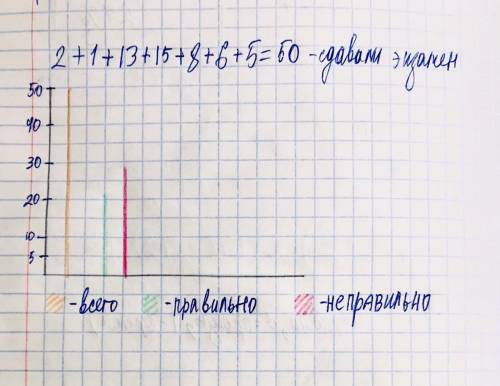 2+1+13+15+8+6+5=50 -сдавали экзамен
50
40
30
20
10
5
-всего -правильно -неправильно